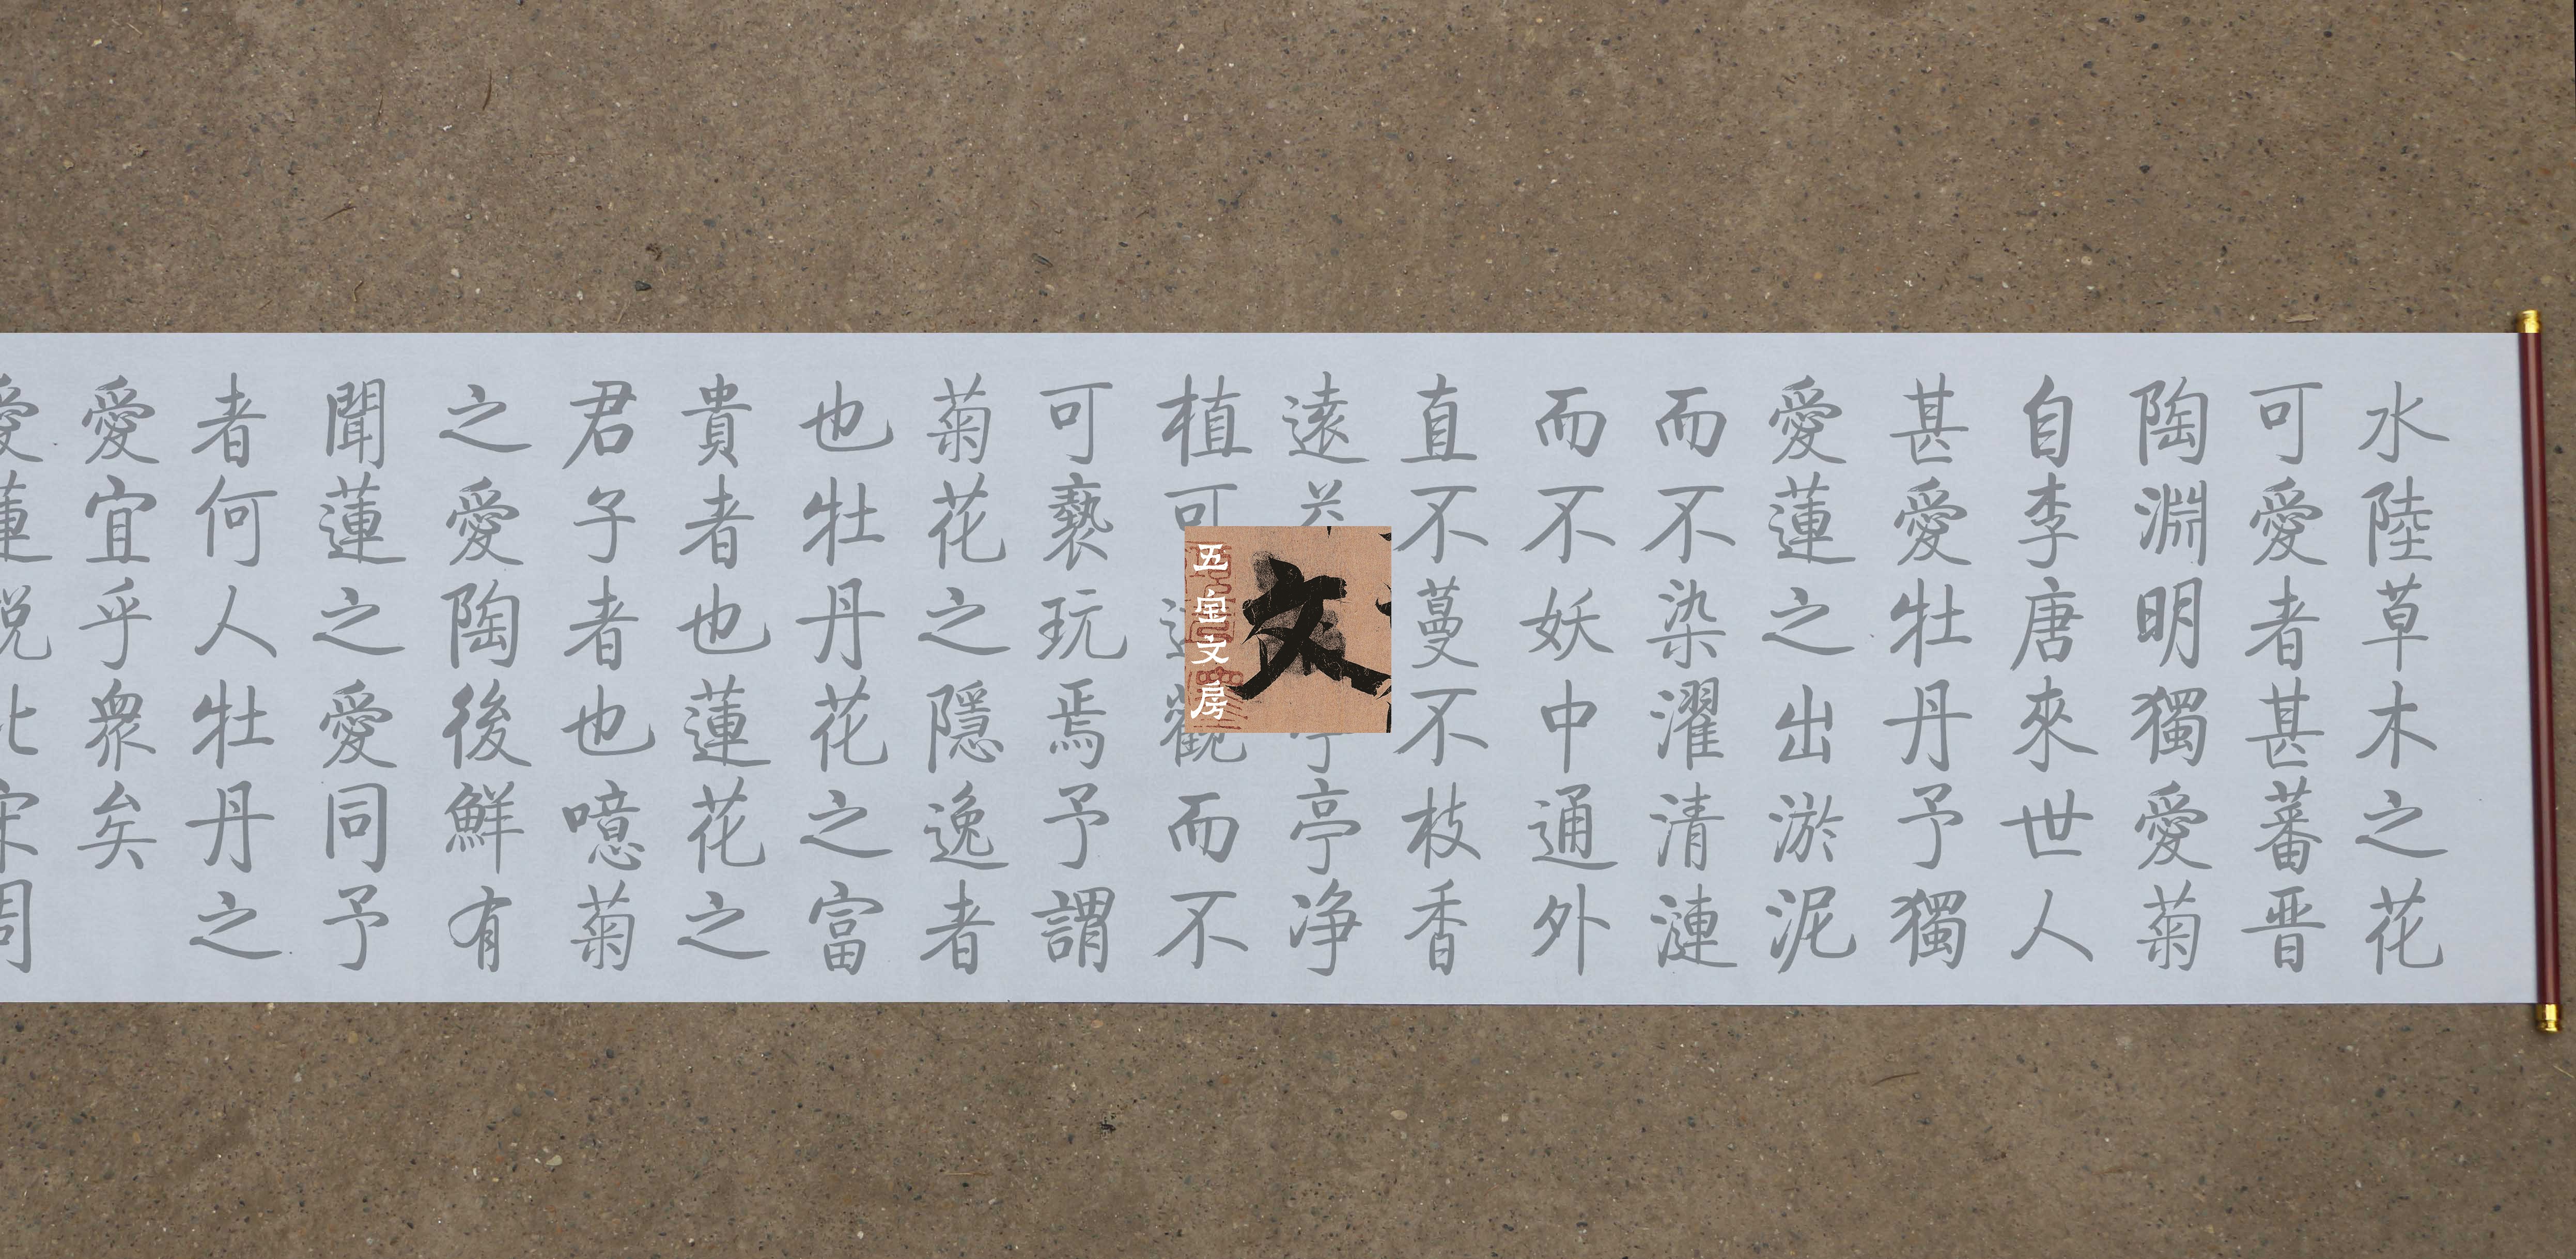 水陸草木之花
可愛者甚蕃晋
陶淵明獨愛菊
自李唐來世人
甚愛牡丹予獨
愛蓮之出淤泥
而不染濯清漣
而不妖中通外
直不蔓不枝香
遠亭亭净
植可觀而不
可褻玩焉予謂
菊花之隱逸者
也牡丹花之富
貴者也蓮花之
君子者也噫菊
之愛陶後鮮有
聞蓮之愛同予
者何人牡丹之
愛宜乎衆矣
愛蓮説北宋周
文
五宝文房